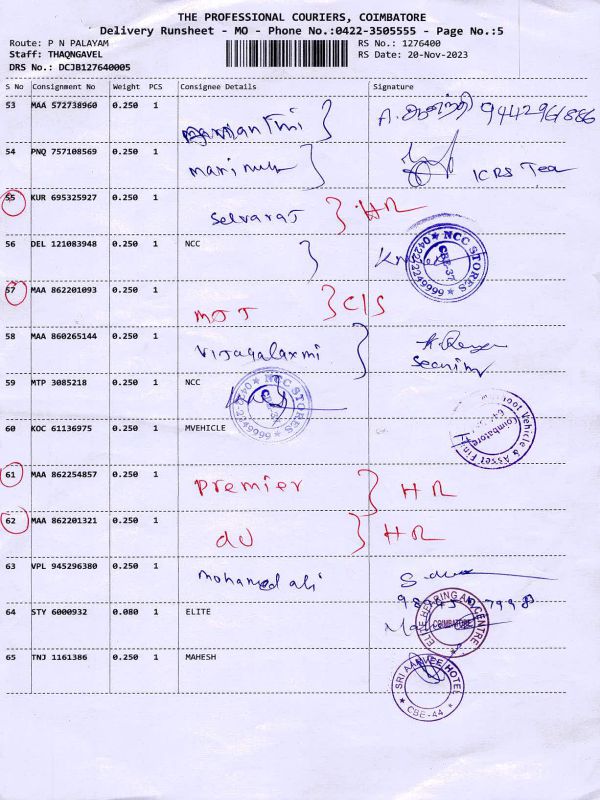 THE PROFESSIONAL COURIERS, COIMBATORE
Delivery Runsheet - MO - Phone No.:0422-3505555 - Page No.:5
Route: P N PALAYAM RS No.: 1276400
Staff: THAQNGAVEL RS Date: 20-Nov-2023
DRS No.: DCJB127640005
S No Consignment No Weight PCS Consignee Details Signature
53 MAA 572738960 0.250 1 9442961886
54 PNQ 757108569 0.250 1 ICRS Team
55 KUR 695325927 0.250 1 Selvaraj HR
56 DEL 121083948 0.250 1 NCC
NCC STORES CBE-37 0422-2249999
57 MAA 862201093 0.250 1 MJJ C/S
58 MAA 860265144 0.250 1 Vijayalaxmi
59 MTP 3085218 0.250 1 NCC
NCC STORES 0422-2249999
60 KOC 61136975 0.250 1 MVEHICLE
Vehicle & Asset Coimbatore
61 MAA 862254857 0.250 1 Premier HR
62 MAA 862201321 0.250 1 do HR
63 VPL 945296380 0.250 1 Mohamed ali
64 STY 6000932 0.080 1 ELITE
HEARING AID CENTRE COIMBATORE
65 TNJ 1161386 0.250 1 MAHESH
SRI AARVEE HOTEL CBE-44